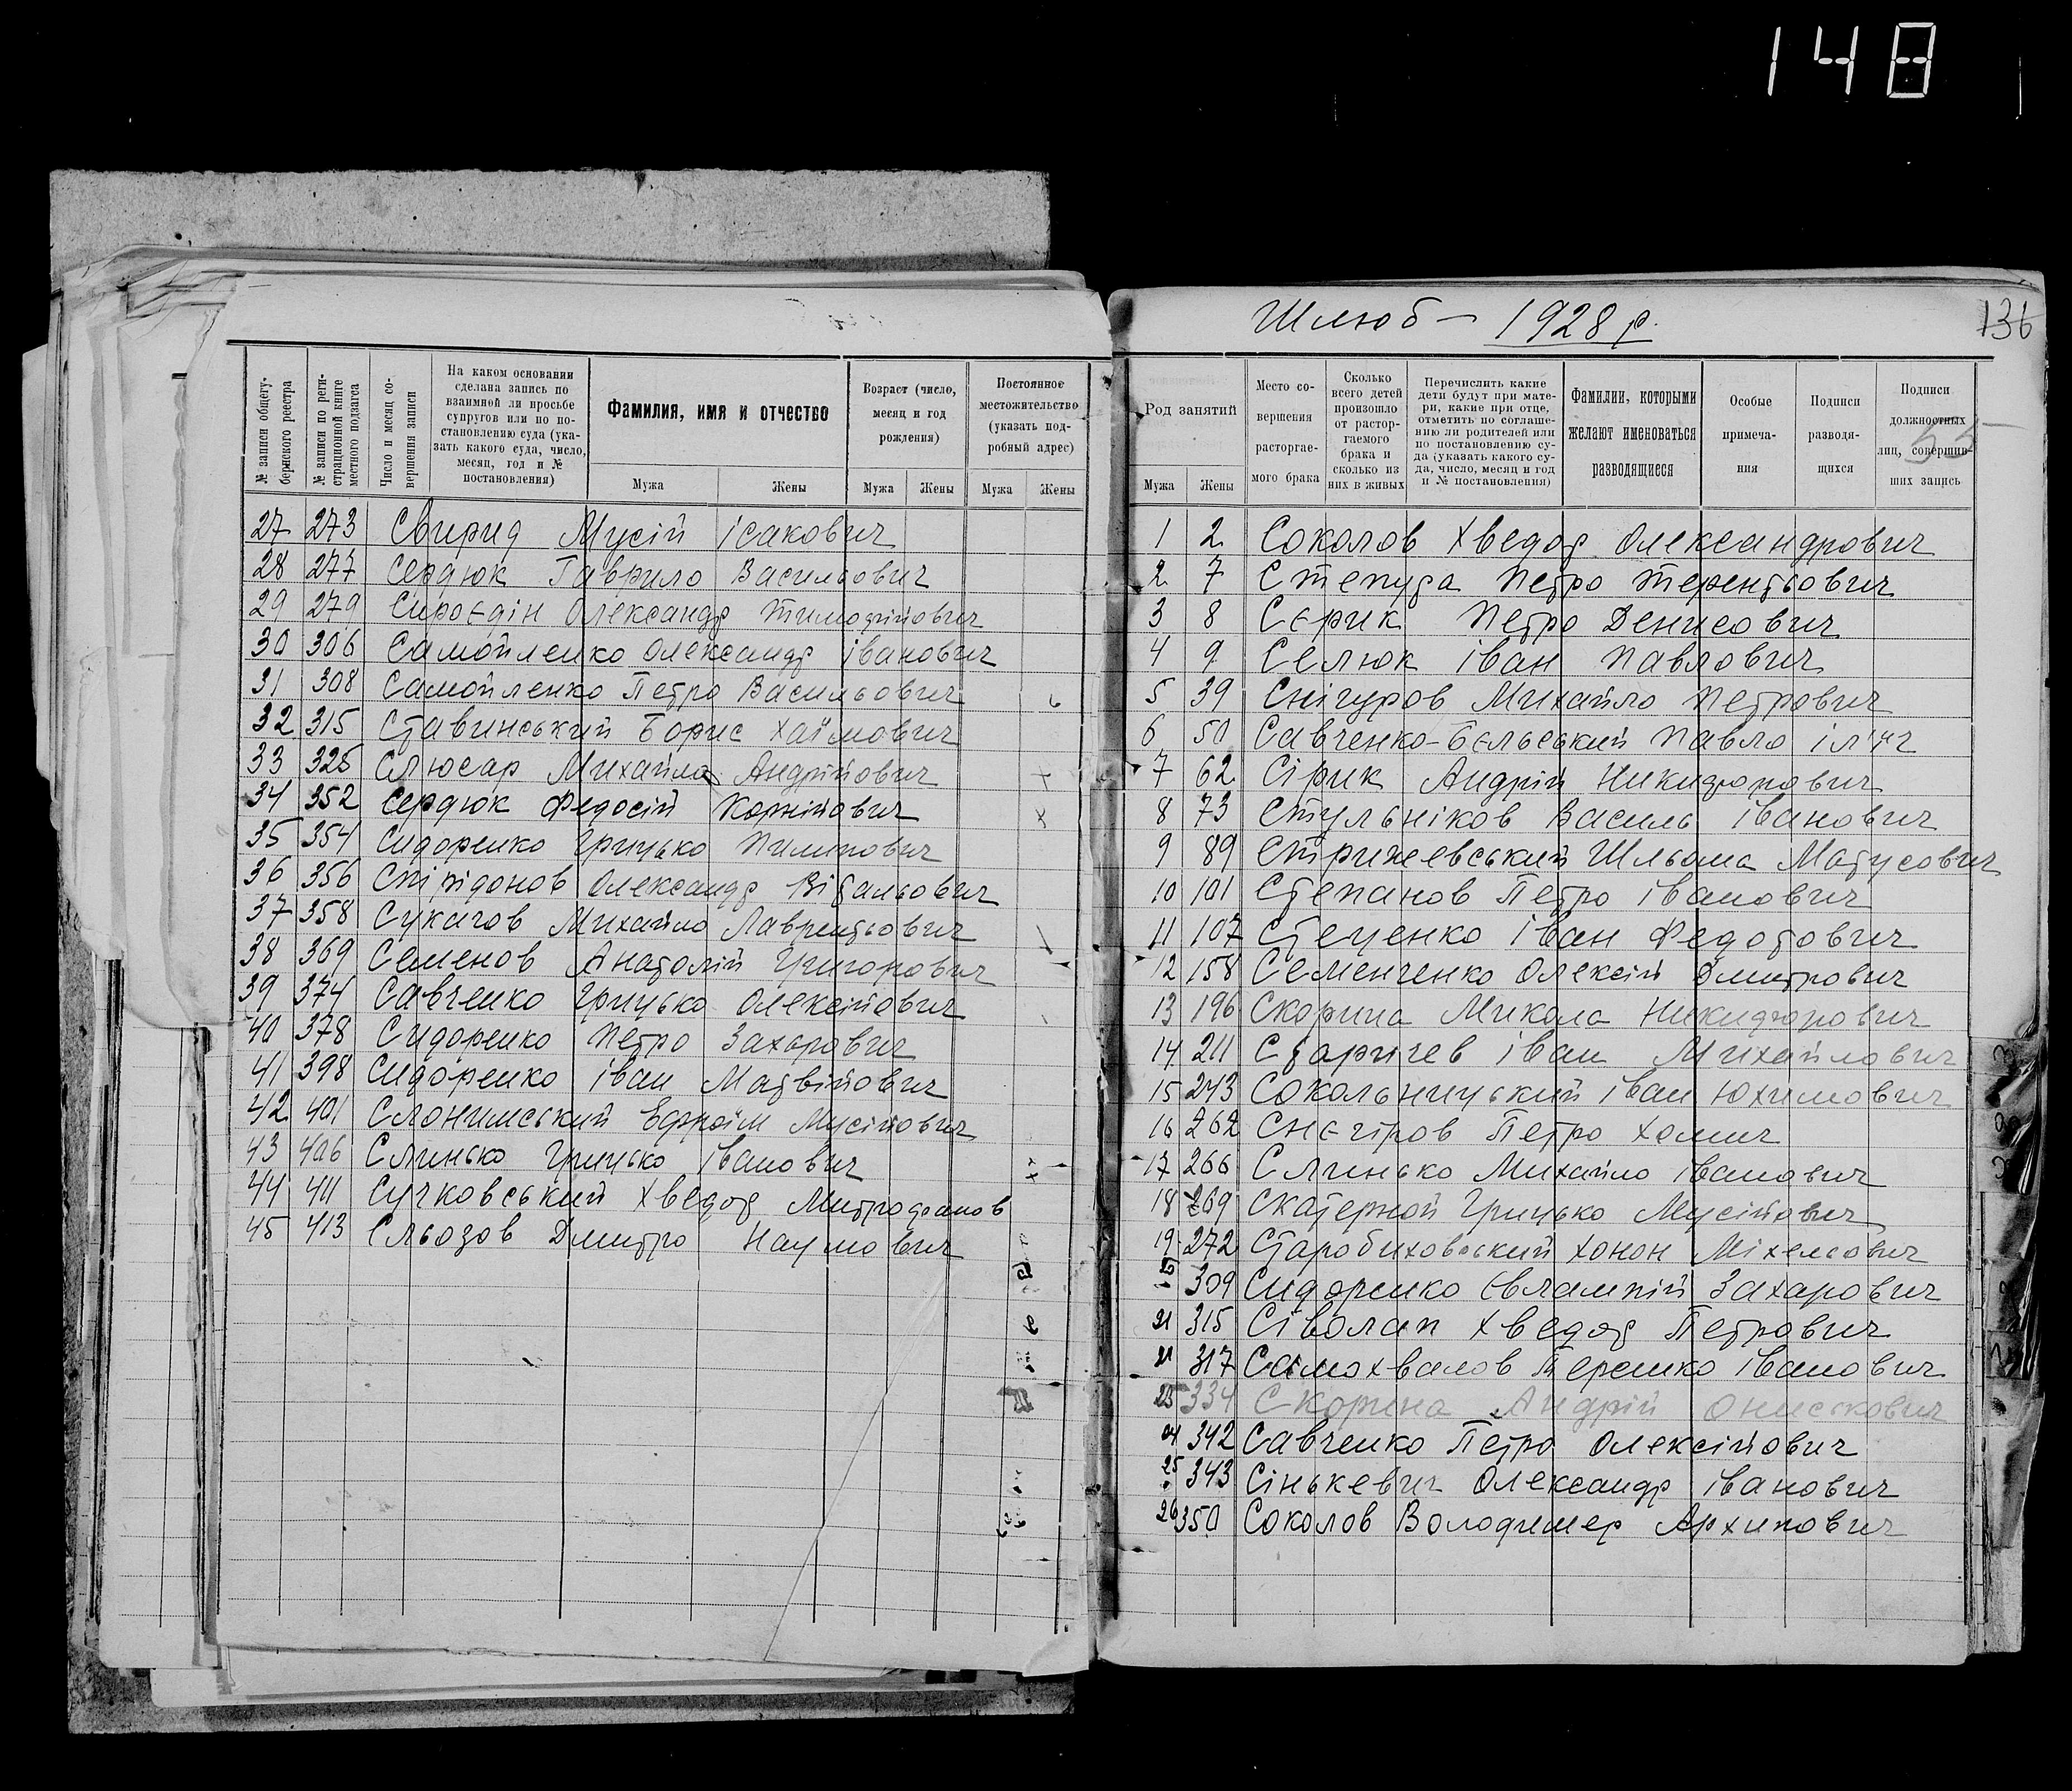 148
№ записи общегу-
бернского реестра
№ записи по реги-
страционной книге
местного подзагса
Число и месяц со-
вершения записи
На каком основании
сделана запись по
взаимной ли просьбе
супругов или по по-
становлению суда (ука-
зать какого суда, число,
месяц, год и №
постановления)
Фамилия, имя и отчество
Мужа Жены
Возраст (число,
месяц и год
рождения)
Мужа Жены
Постоянное
местожительство
(указать под-
робный адрес)
Мужа Жены
27 273 Свирид Мусій Ісакович
28 277 Сердюк Гаврило Васильович
29 279 Сироєдін Олександр Тимофійович
30 306 Самойленко Олександр Іванович
31 308 Самойленко Петро Васильович
32 315 Ставинський Борис Хаїмович
33 325 Слюсар Михайло Андрійович
34 352 Сердюк Федосій Корнійович
35 354 Сидоренко Грицько Пилипович
36 356 Спірідонов Олександр Вітальович
37 358 Сукачов Михайло Лаврентьович
38 369 Семенов Анатолій Григорович
39 374 Савченко Грицько Олексійович
40 378 Сидоренко Петро Захарович
41 398 Сидоренко Іван Матвійович
42 401 Слонимський Ефроїм Мусійович
43 406 Слинько Грицько Іванович
44 411 Сучковський Хведот Митрофанов
45 413 Сльозов Дмитро Наумович
Шлюб — 1928 р.
136
Род занятий
Мужа Жены
Место со-
вершения
расторгае-
мого брака
Сколько
всего детей
произошло
от растор-
гаемого
брака и
сколько из
них в живых
Перечислить какие
дети будут при мате-
ри, какие при отце,
отметить по соглаше-
нию ли родителей или
по постановлению су-
да (указать какого су-
да, число, месяц и год
и № постановления)
Фамилии, которыми
желают именоваться
разводящиеся
Особые
примеча-
ния
Подписи
разводя-
щихся
Подписи
должностных
лиц, совершив-
ших запись
1 2 Соколов Хведот Олександрович
2 7 Степута Петро Терентьович
3 8 Сєрик Петро Денисович
4 9 Селюк Іван Павлович
5 39 Снігуров Михайло Петрович
6 50 Савченко-Бєльський Павло Іл'їч
7 62 Сірик Андрій Никифорович
8 73 Стульніков Василь Іванович
9 89 Стрижевський Шльома Матусович
10 101 Степанов Петро Іванович
11 107 Стеценко Іван Федотович
12 158 Семенченко Олексій Дмитрович
13 196 Скорина Микола Никифорович
14 211 Старичев Іван Михайлович
15 243 Сокольницький Іван Юхимович
16 262 Снєгіров Петро Хомич
17 266 Слинько Михайло Іванович
18 269 Скатерной Грицько Мусійович
19 272 Старобиховський Хонон Міхельович
309 Сидоренко Євлампій Захарович
21 315 Сіволап Хведот Петрович
317 Самохвалов Терешко Іванович
334 Скорина Андрій Онискович
24 342 Савченко Петро Олексійович
25 343 Сінькевич Олександр Іванович
26 350 Соколов Володимер Архипович